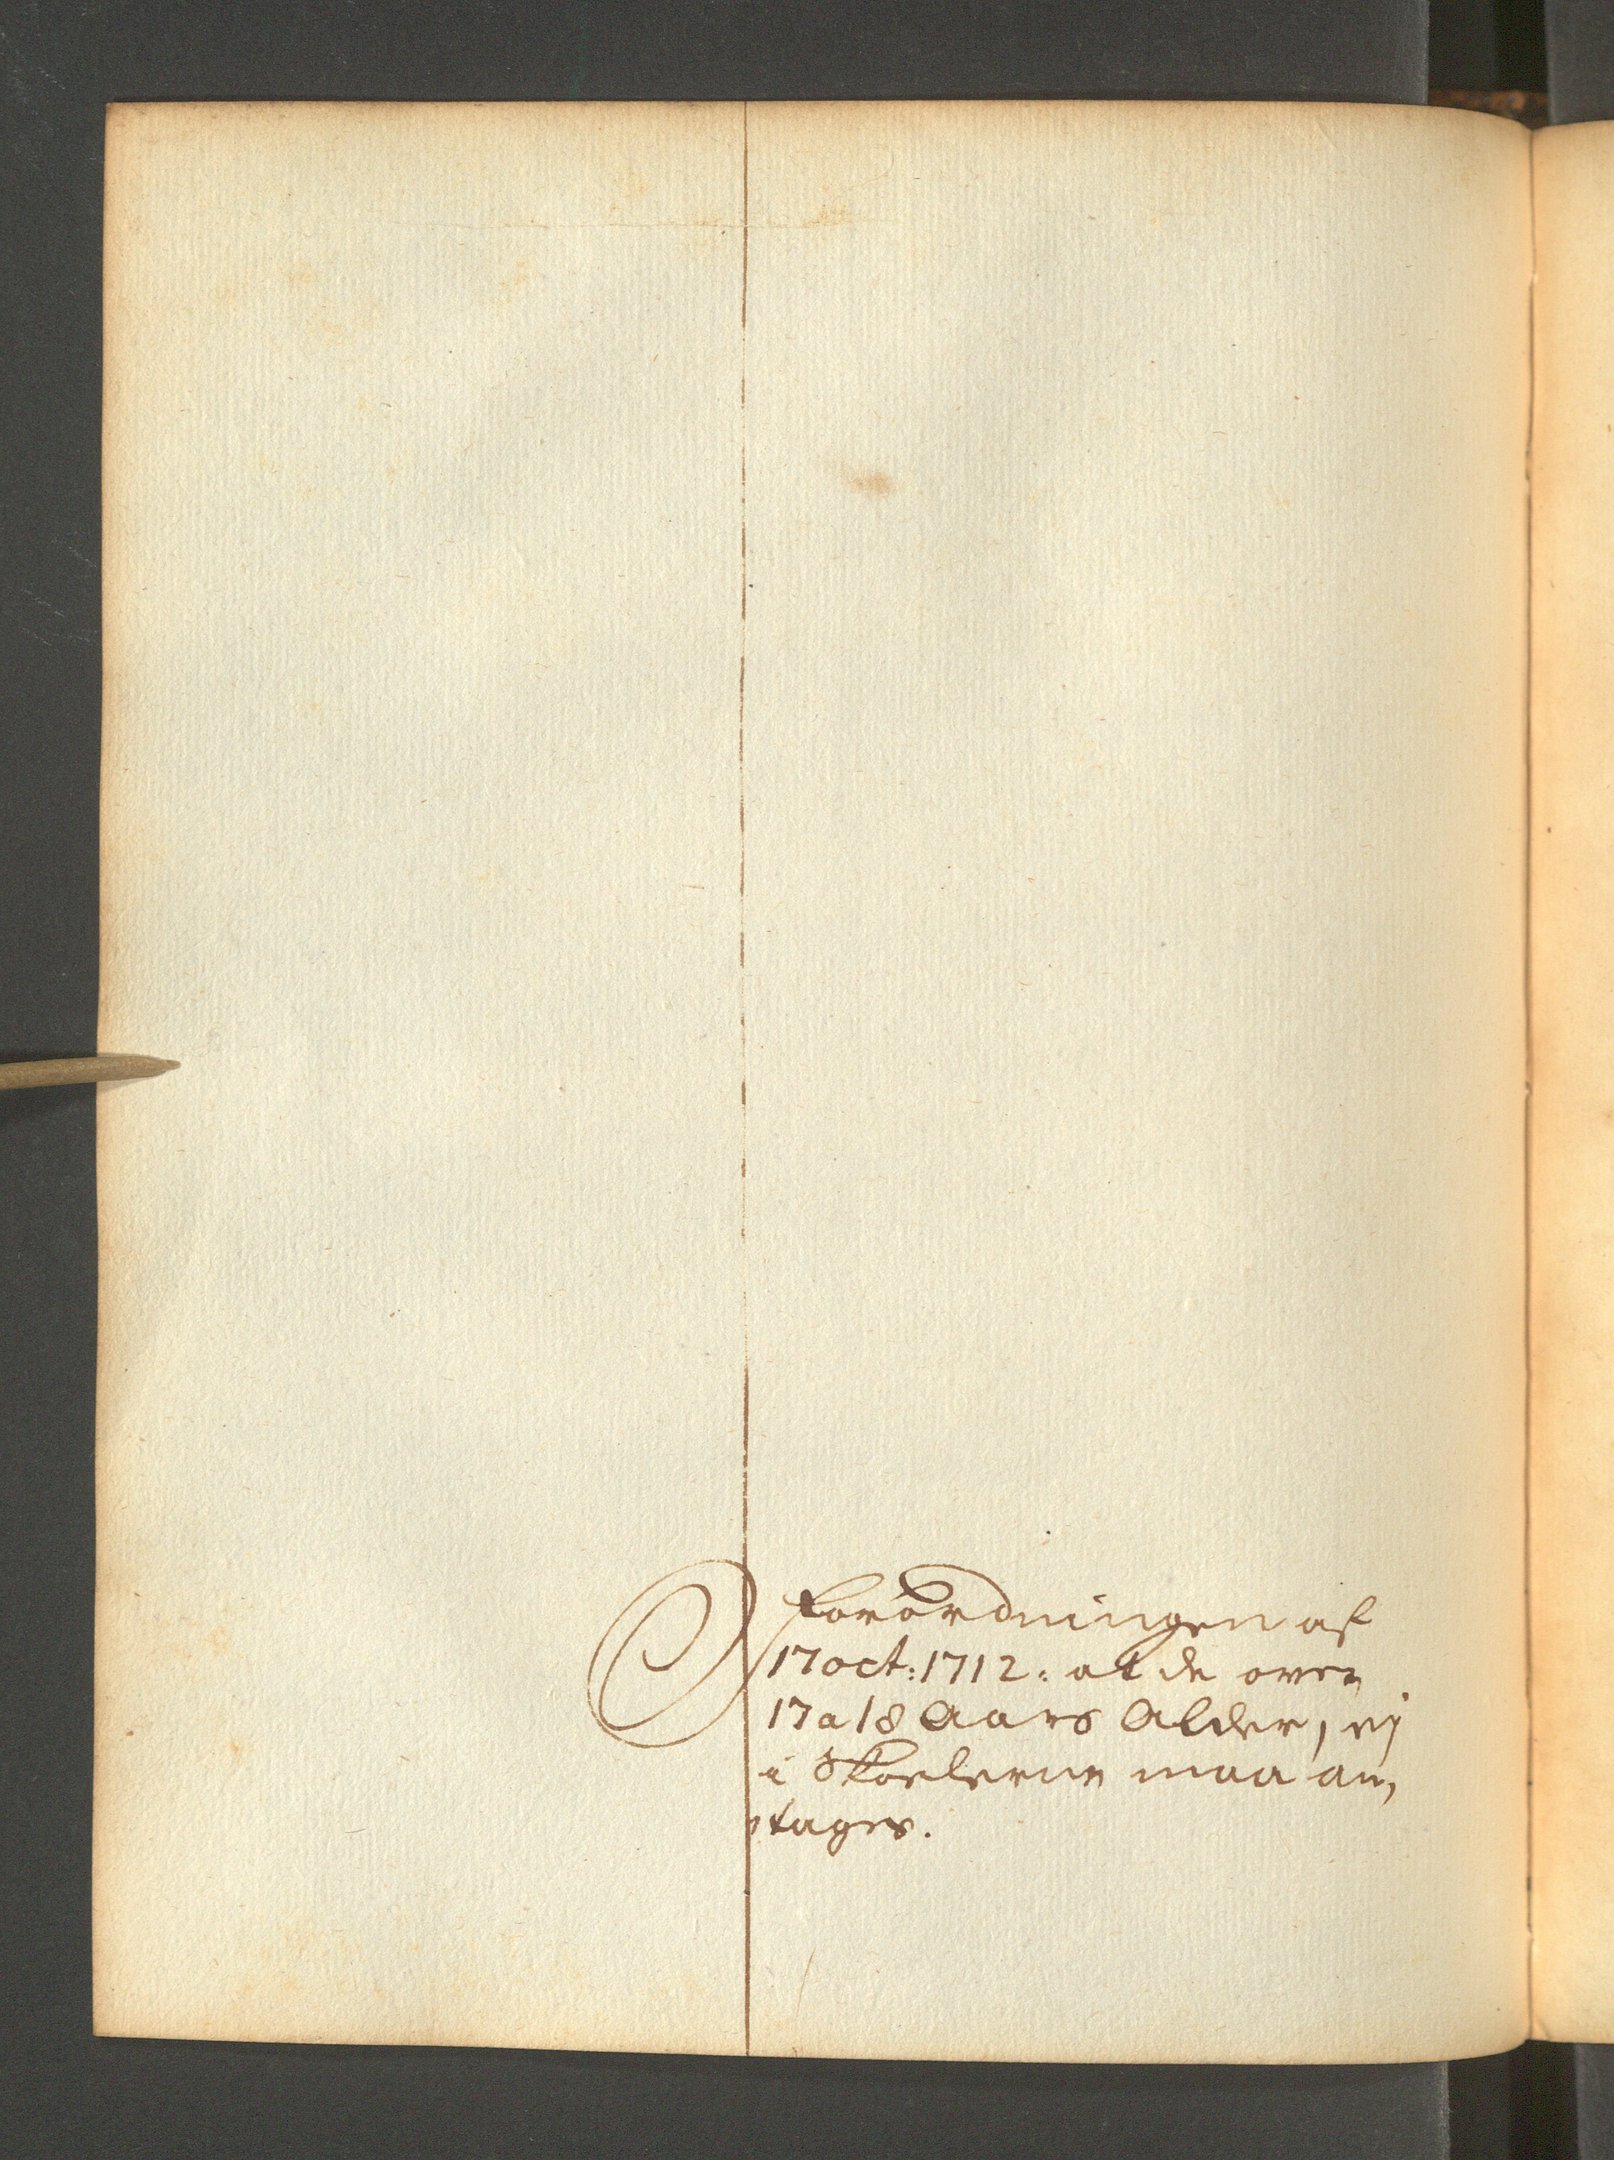 Forordningen af
17 oct: 1712: at de over
17 a 18 Aars Alder, ej
i Skolerne maa an,
tages.